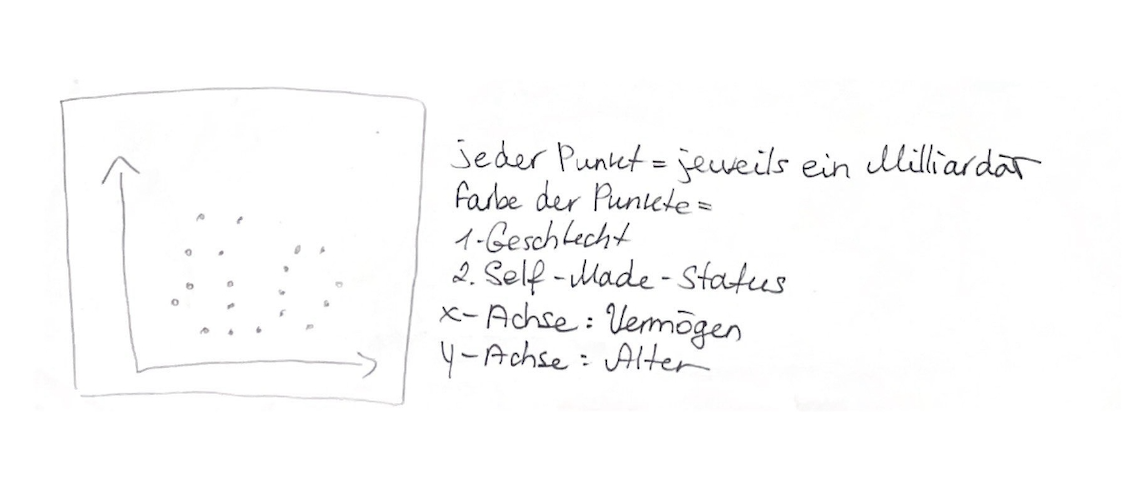 jeder Punkt = jeweils ein Milliardär
Farbe der Punkte =
1. Geschlecht
2. Self-Made-Status
x-Achse: Vermögen
y-Achse: Alter